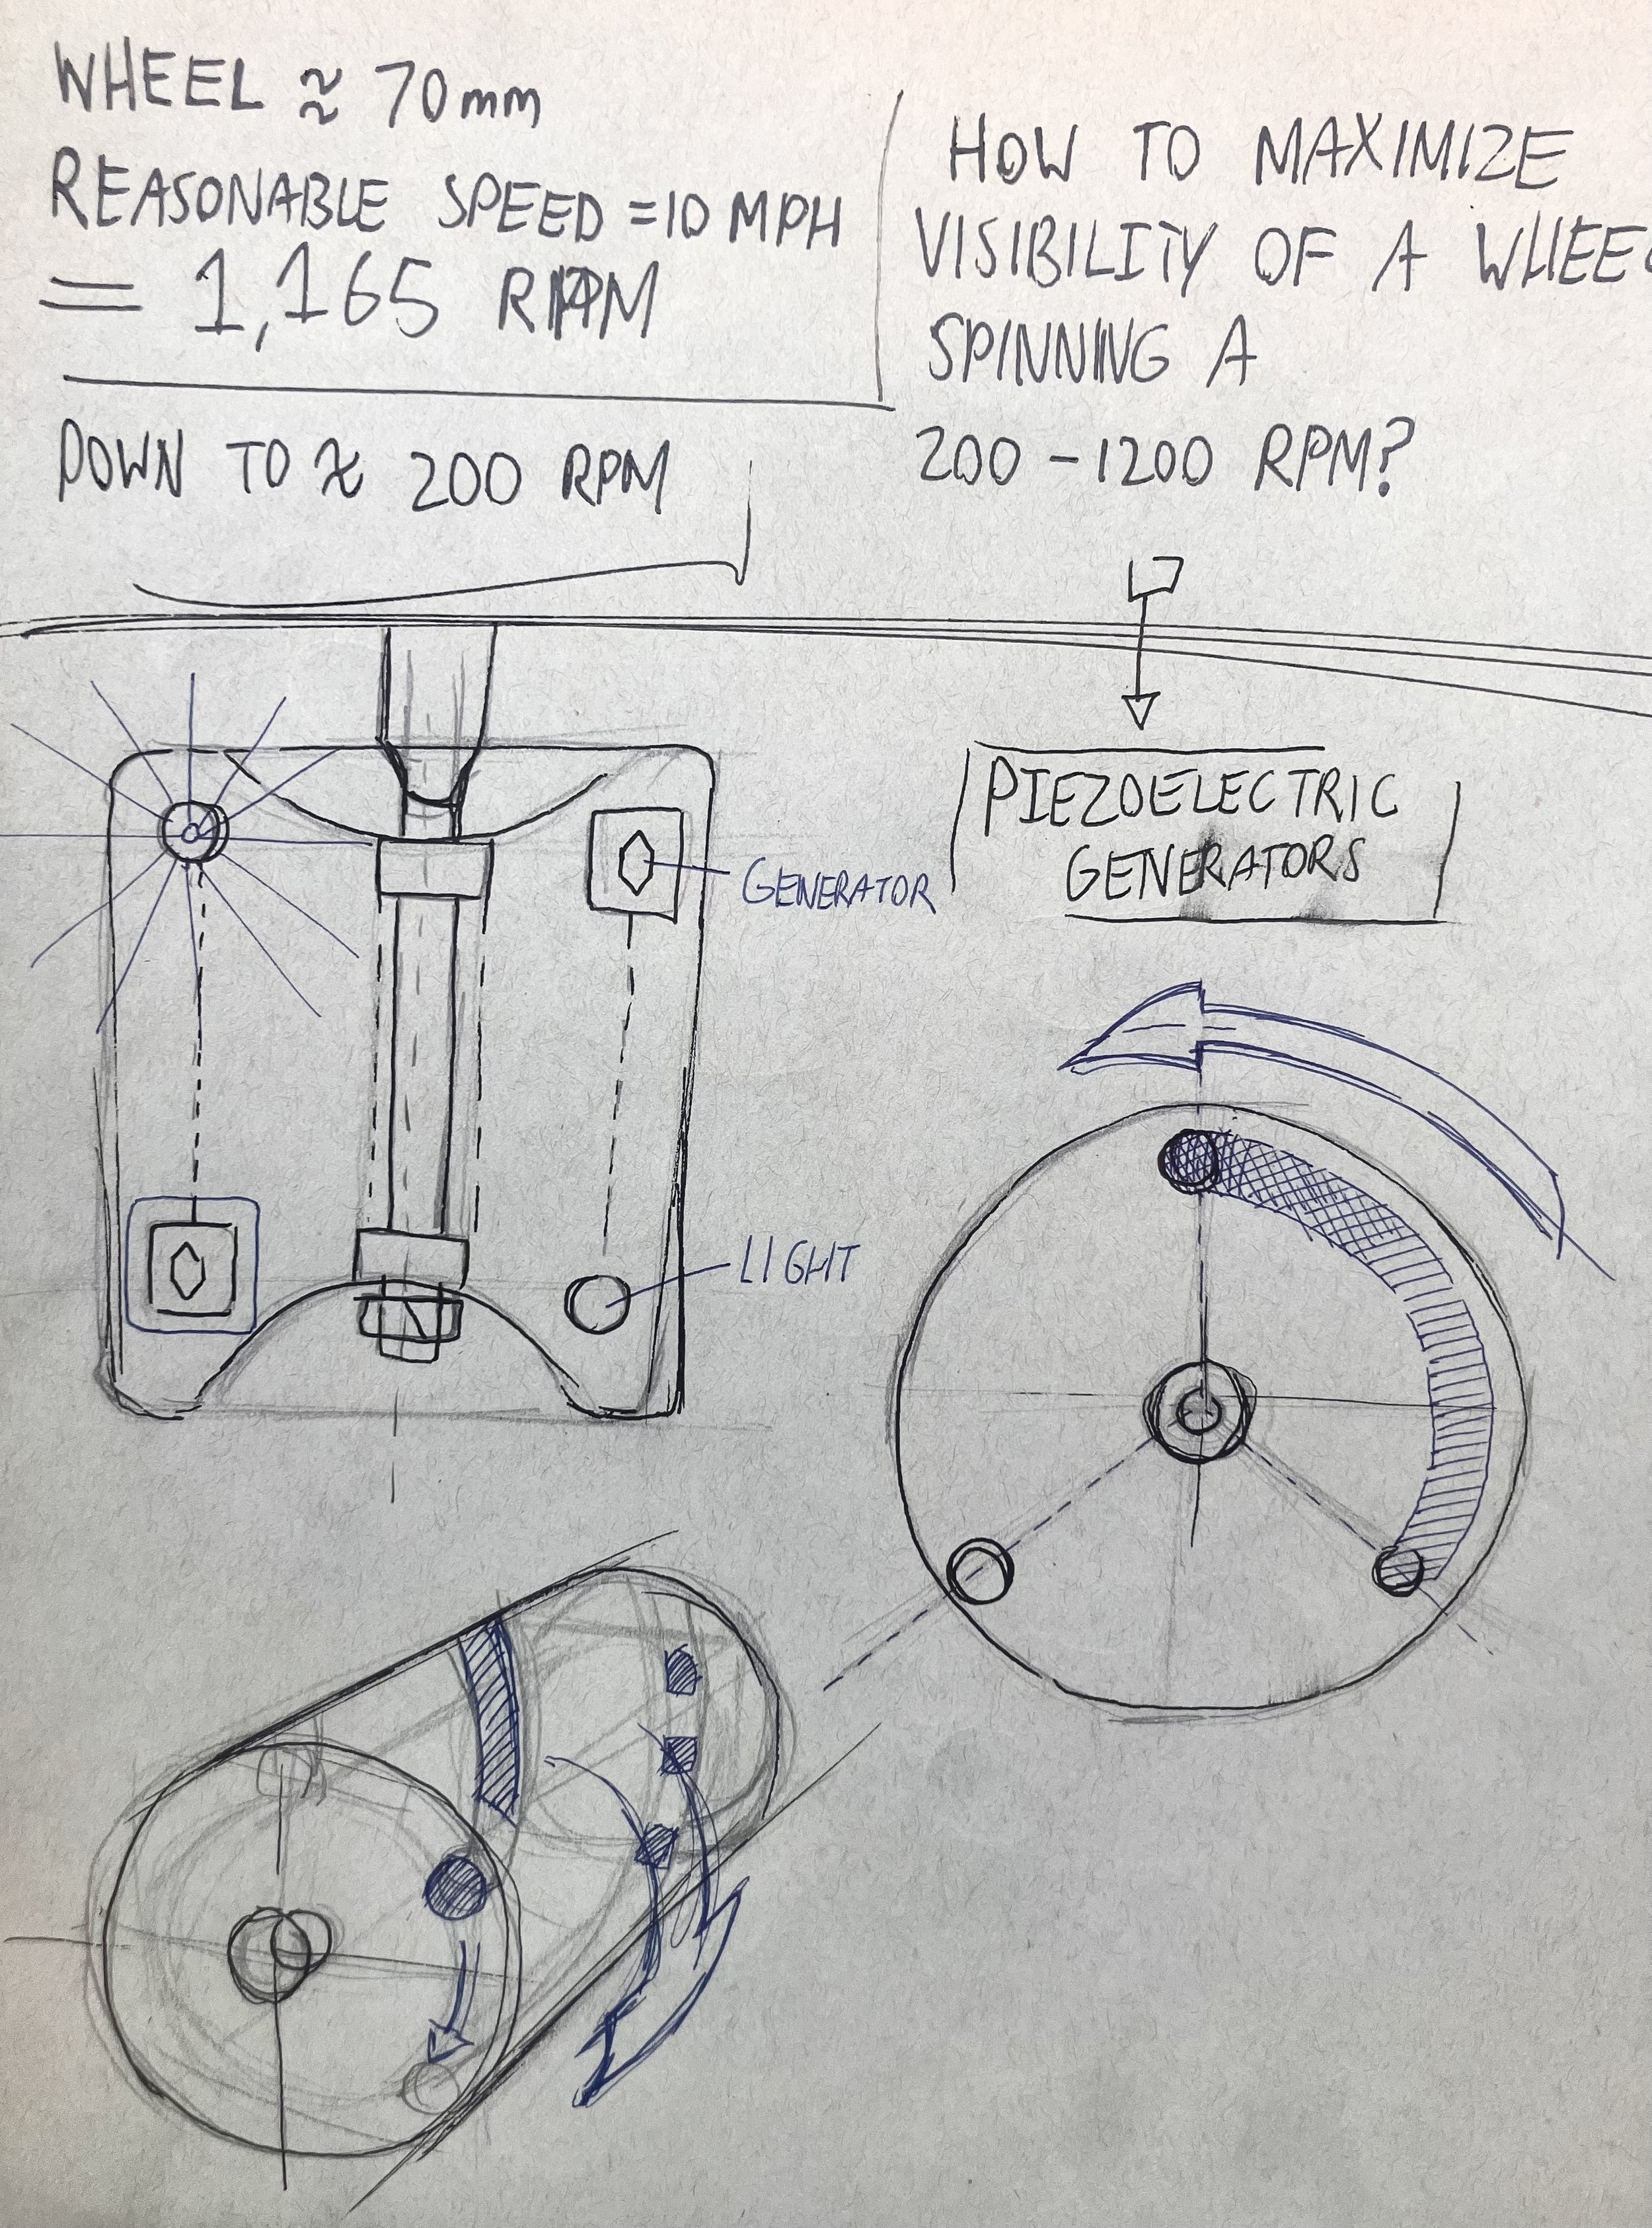 WHEEL ≈ 70mm
REASONABLE SPEED = 10 MPH
= 1,165 RPM
DOWN TO ≈ 200 RPM
HOW TO MAXIMIZE
VISIBILITY OF A WHEEL
SPINNING A
200 - 1200 RPM?
PIEZOELECTRIC
GENERATORS
GENERATOR
LIGHT